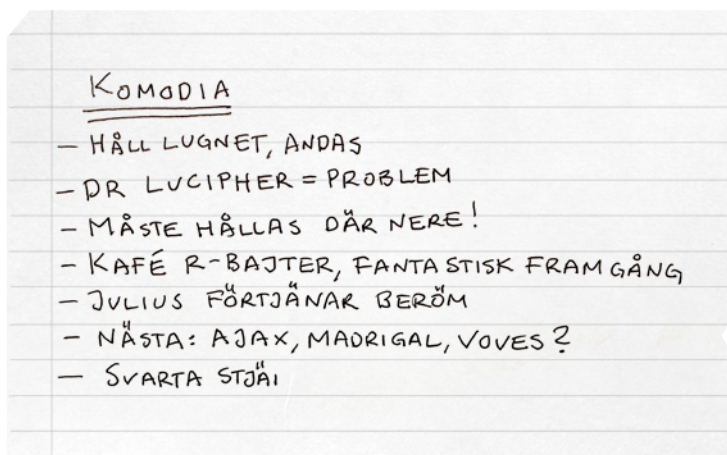 KOMODIA
- HÅLL LUGNET, ANDAS
- DR LUCIPHER = PROBLEM
- MÅSTE HÅLLAS DÄR NERE!
- KAFÉ R-BAJTER, FANTASTISK FRAMGÅNG
- JULIUS FÖRTJÄNAR BERÖM
- NÄSTA: AJAX, MADRIGAL, VOVES?
- SVARTA STJÄI